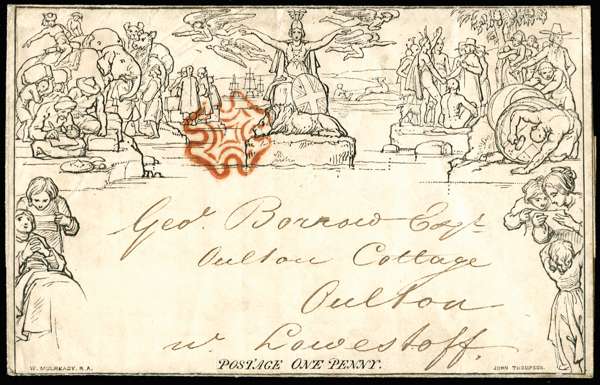 Geor. Borrow Esqr.
Oulton Cottage
Oulton
nr. Lowestoff.
POSTAGE ONE PENNY.
W. MULREADY, R.A.
JOHN THOMPSON.